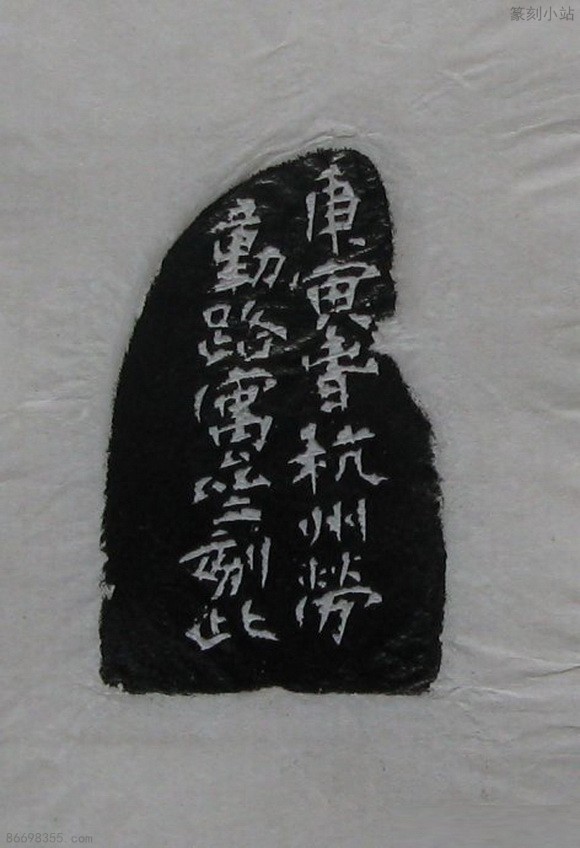 篆刻小站
庚寅春杭州勞
動路寓刻此
86698355.com